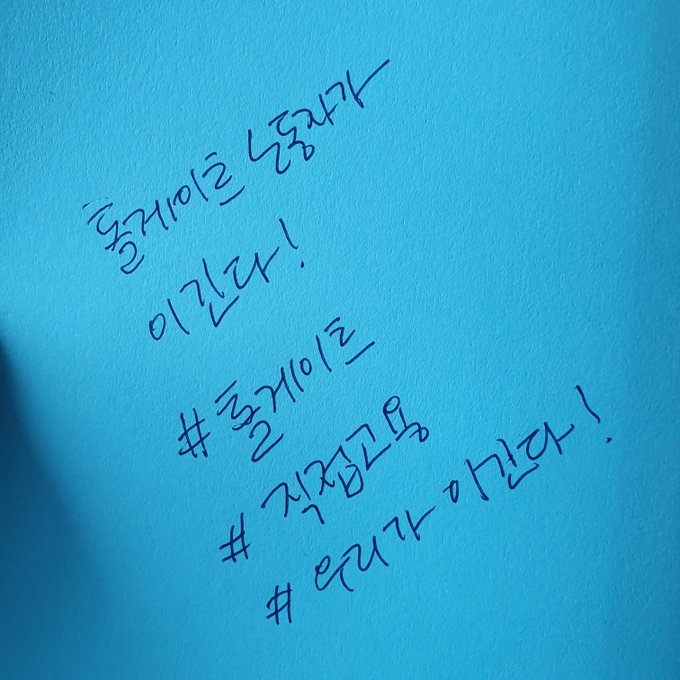 톨게이트 노동자가
이긴다!
#톨게이트
#직접고용
#우리가 이긴다!